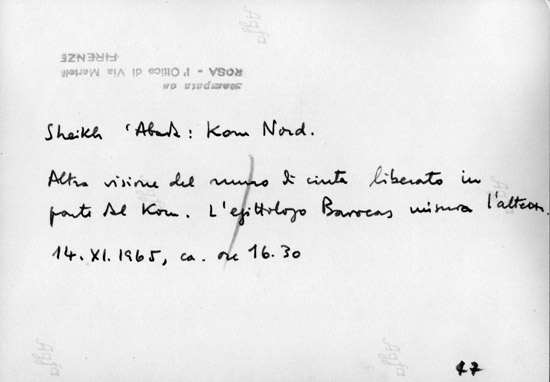 Stampata da
ROSA - l'Ottico di Via Martelli
FIRENZE
Sheikh 'Abada: Kom Nord.
Altra visione del muro di cinta liberato in
parte dal Kom. L'egittologo Barocas misura l'altezza.
14.XI.1965, ca. ore 16.30
47
Agfa
Agfa
Agfa
Agfa
Agfa